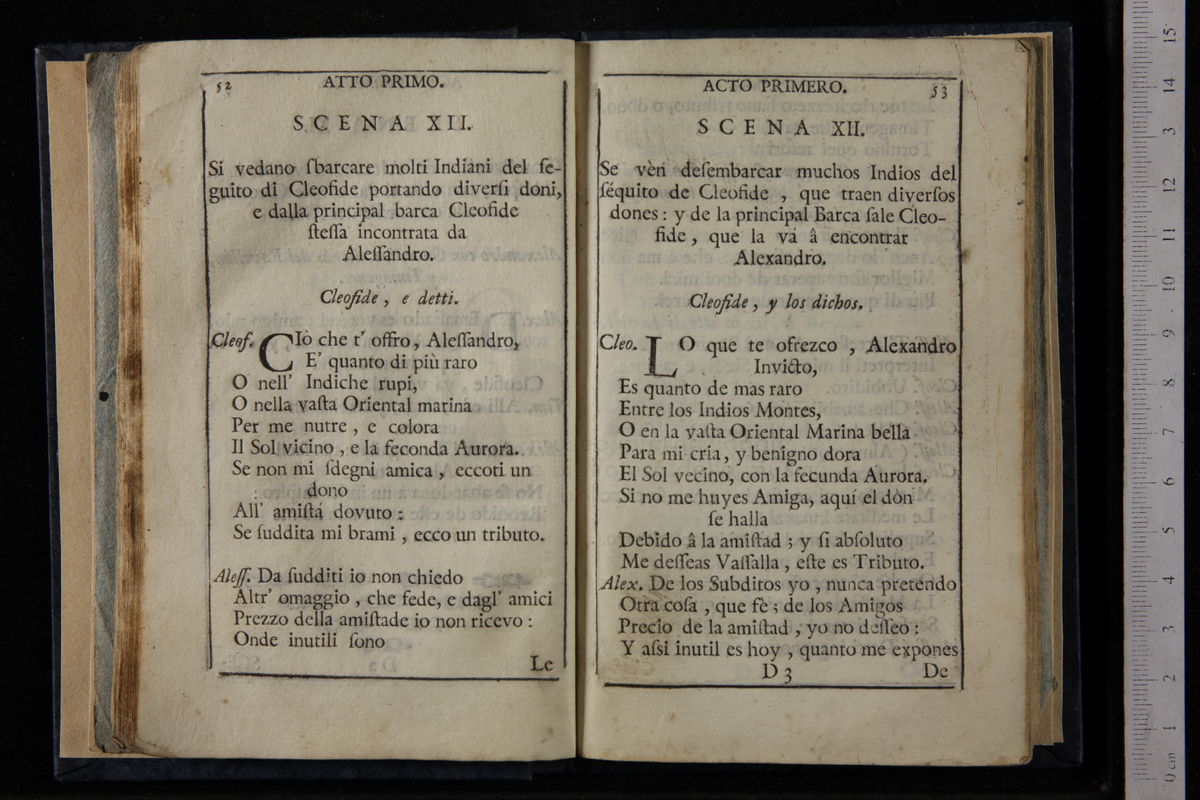 52
ATTO PRIMO.
SCENA XII.
Si vedano ſbarcare molti Indiani del ſe-
guito di Cleofide portando diverſi doni,
e dalla principal barca Cleofide
ſteſſa incontrata da
Aleſſandro.
Cleofide, e detti.
Cleof. CIò che t' offro, Aleſſandro,
E' quanto di più raro
O nell' Indiche rupi,
O nella vaſta Oriental marina
Per me nutre, e colora
Il Sol vicino, e la feconda Aurora.
Se non mi ſdegni amica, eccoti un
dono
All' amiſtá dovuto:
Se ſuddita mi brami, ecco un tributo.
Aleſſ. Da ſudditi io non chiedo
Altr' omaggio, che fede, e dagl' amici
Prezzo della amiſtade io non ricevo:
Onde inutili ſono
Le
ACTO PRIMERO.
53
SCENA XII.
Se vèn deſembarcar muchos Indios del
ſéquito de Cleofide, que traen diverſos
dones: y de la principal Barca ſale Cleo-
fide, que la vá â encontrar
Alexandro.
Cleofide, y los dichos.
Cleo. LO que te ofrezco, Alexandro
Invicto,
Es quanto de mas raro
Entre los Indios Montes,
O en la vaſta Oriental Marina bella
Para mi cria, y benigno dora
El Sol vecino, con la fecunda Aurora.
Si no me huyes Amiga, aquí el dòn
ſe halla
Debido â la amiſtad; y ſi abſoluto
Me deſſeas Vaſſalla, eſte es Tributo.
Alex. De los Subditos yo, nunca pretendo
Otra coſa, que fè; de los Amigos
Precio de la amiſtad, yo no deſſeo:
Y aſsi inutil es hoy, quanto me expones
D 3
De
0 cm 1 2 3 4 5 6 7 8 9 10 11 12 13 14 15